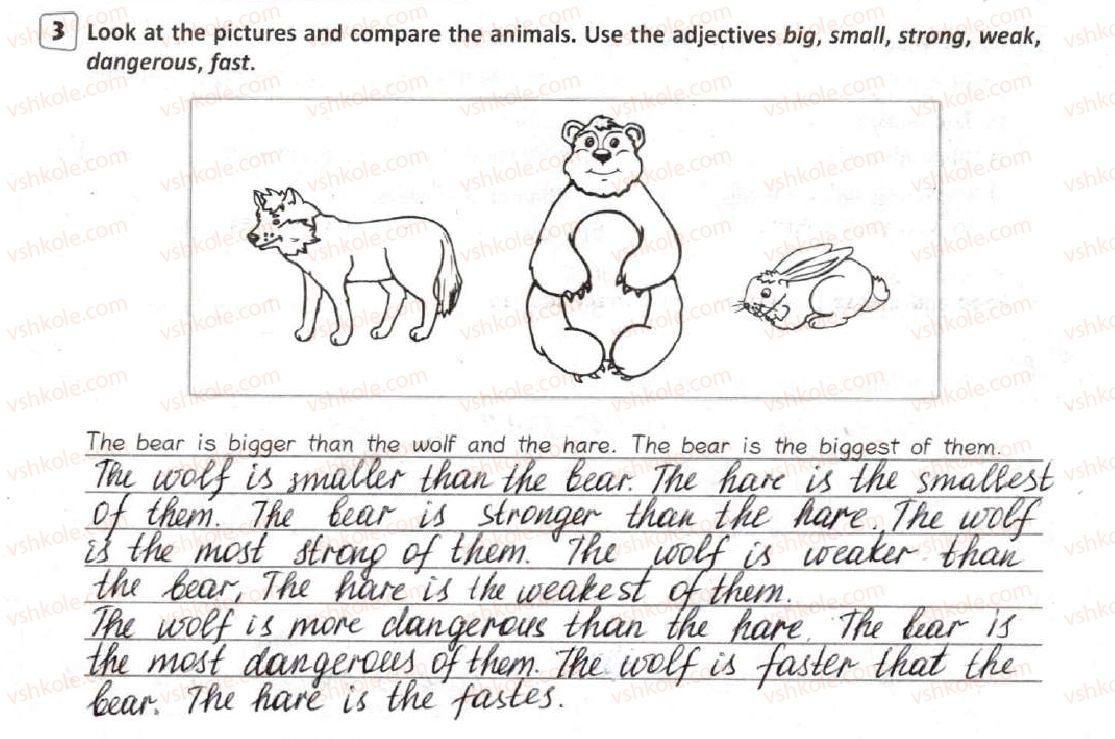 3 Look at the pictures and compare the animals. Use the adjectives big, small, strong, weak,
dangerous, fast.
The bear is bigger than the wolf and the hare. The bear is the biggest of them.
The wolf is smaller than the bear. The hare is the smallest
of them. The bear is stronger than the hare. The wolf
is the most strong of them. The wolf is weaker than
the bear, The hare is the weakest of them.
The wolf is more dangerous than the hare. The bear is
the most dangerous of them. The wolf is faster that the
bear. The hare is the fastes.
vshkole.com